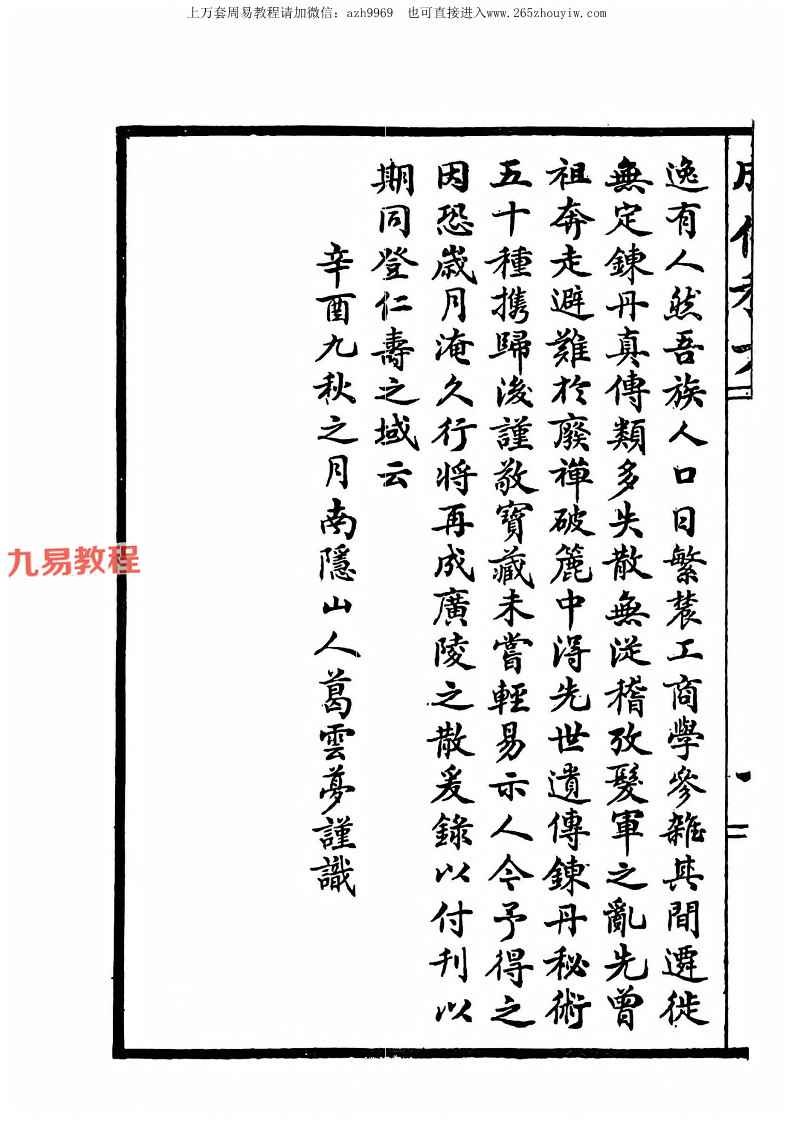 上万套周易教程请加微信：azh9969 也可直接进入www.265zhouyiw.com
逸有人然吾族人口日繁農工商學參雜其間遷徙
無定鍊丹真傳類多失散無従稽攷髮軍之亂先曾
祖奔走避難於廢禅破簏中淂先世遺傳鍊丹秘術
五十種携歸後謹敬寶藏未嘗輕易示人今予得之
因恐歲月淹久行將再成廣陵之散爰錄以付刊以
期同登仁壽之域云
辛酉九秋之月南隱山人葛雲夢謹識
九易教程